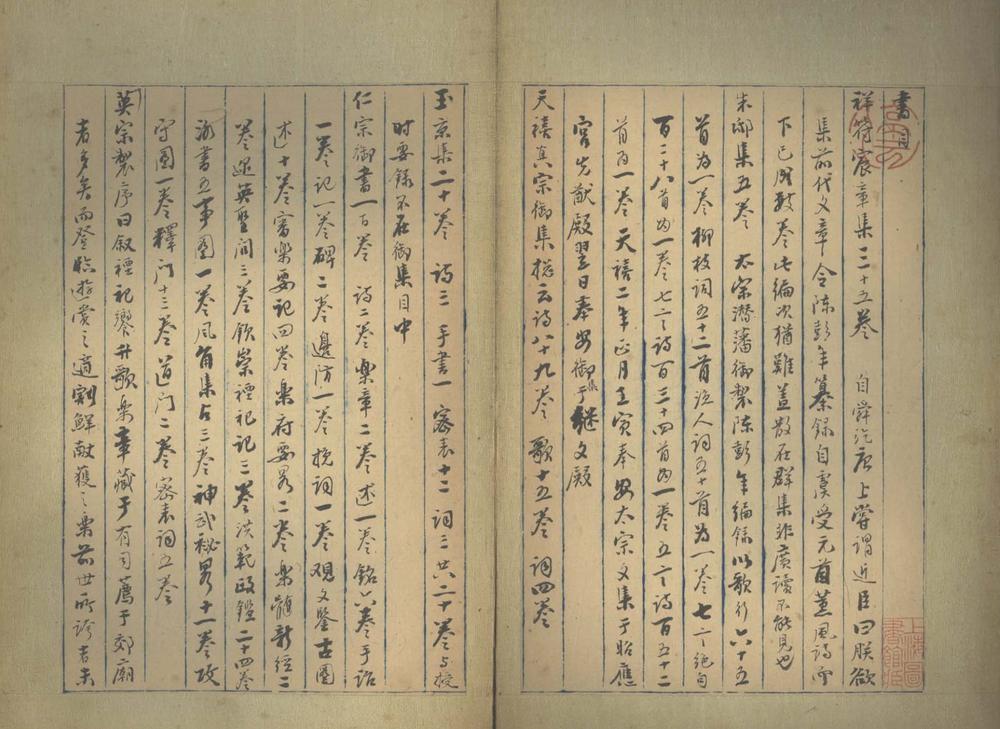 書目
祥符宸章集二十五卷 自舜訖唐 上嘗謂近臣曰朕欲
集前代文章令陳彭年纂錄自虞受元首薰風詩而
下已及數卷此編次猶難蓋散在群集非廣讀不能見也
朱邸集五卷 太宗潛藩御製陳彭年編錄以歌行六十五
首為一卷柳枝詞五十二首泣人詞五十首為一卷七言絕句
百二十八首為一卷七言詩百三十四首為一卷五言詩百五十二
首為一卷天禧二年正月壬寅奉安太宗文集于昭應
宮先獻殿翌日奉安御集于繼文殿
天禧真宗御集總云詩八十九卷 歌十五卷 詞四卷
玉京集二十卷 詩三 手書一 密表十二 詞三 共六二十卷与授
时要錄不在御集目中
仁宗御書一百卷 詩二卷樂章二卷述一卷銘六卷手詔
一卷記一卷碑二卷邊防一卷挽詞一卷觀文鑒古圖
述十卷審樂要記四卷樂府要畧二卷樂髓新經二
卷邇英聖問三卷欽崇禋祀記三卷洪範政鑒二十四卷
洛書五事圖一卷風角集占三卷神武秘畧十一卷攻
守圖一卷釋門十三卷道門二卷密表詞五卷
英宗製序曰叙禋祀饗升歌樂章藏于有司薦于郊廟
者多矣而登臨遊賞之適割鮮献獲之樂前世所誇者未
上海圖書館藏